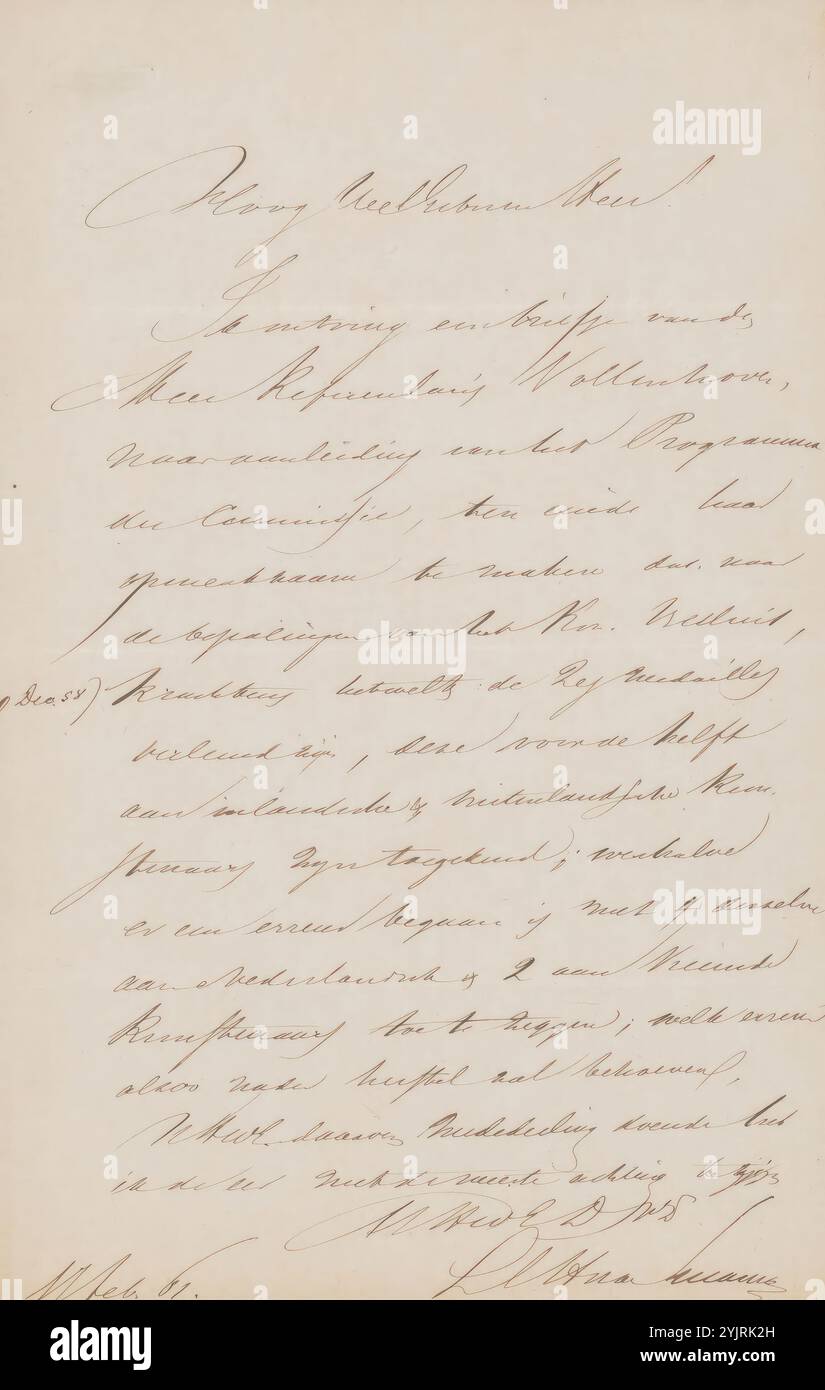 Hoog Wel Geboren Heer!
Ik ontving een briefje van den
Heer Referendaris Vollenhoven,
naar aanleiding van het Programma
der Commissie, ten einde haar
opmerkzaam te maken dat naar
de bepalingen van het Kon. Besluit,
9 Dec. 58) krachtens hetwelk de Medailles
verleend zijn, deze voor de helft
aan inlandsche & buitenlandsche Kun-
stenaars zijn toegekend; weshalve
er een erreur begaan is met derzelve
aan Nederlandsche & 2 aan Vreemde
Kunstenaars toe te zeggen; welk erreur
alzoo nader herstel zal behoeven.
UHWE. daarvan mededeeling doende heb
ik de eer met de meeste achting te zijn
UHWED
Feb. 61.
alamy
Image ID: 2YJRK2H
www.alamy.com